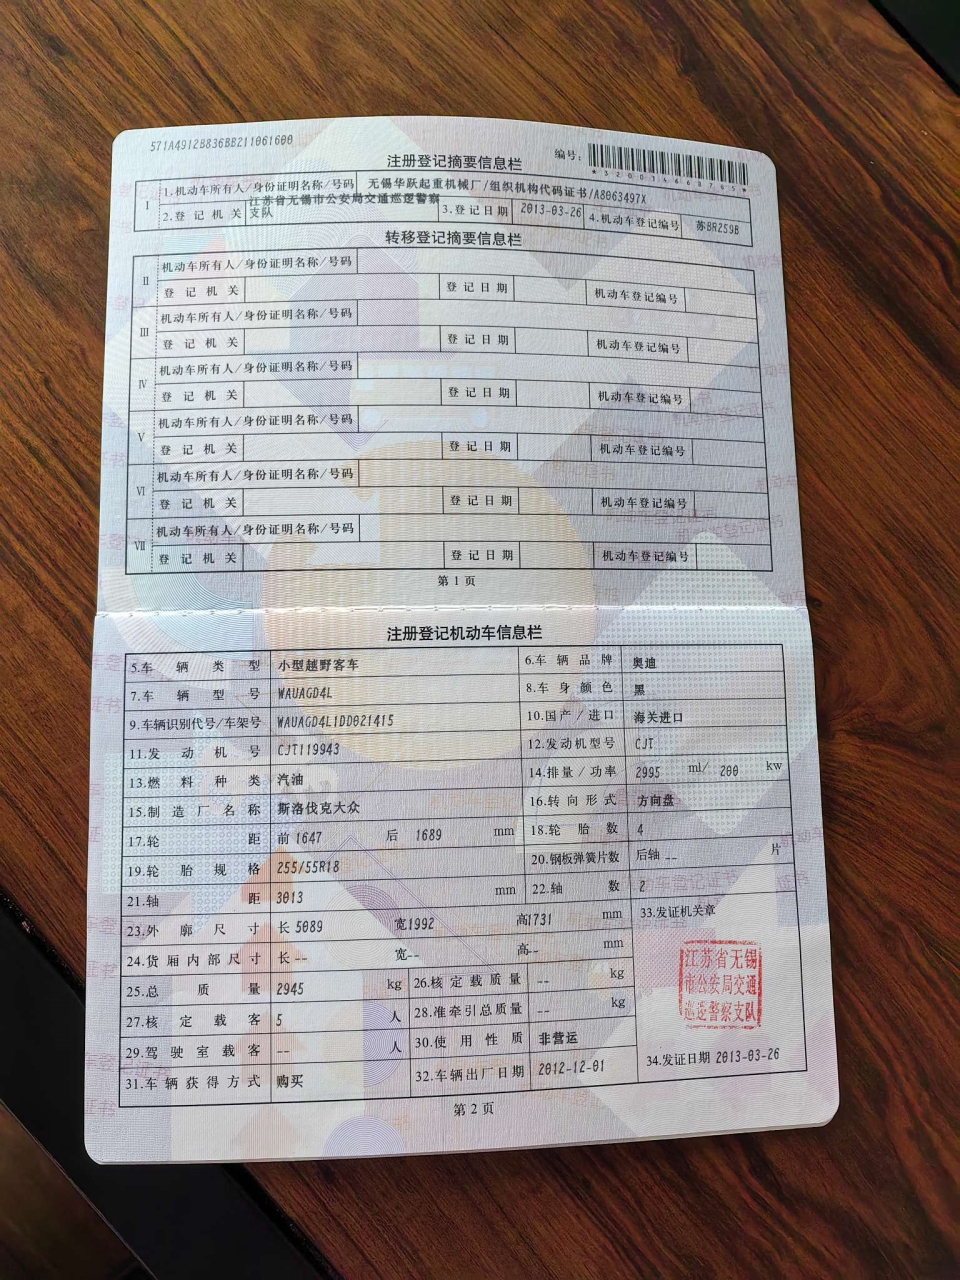 571A4912B836BB211061600
注册登记摘要信息栏
编号:
*320014668765*
I 1.机动车所有人/身份证明名称/号码 无锡华跃起重机械厂/组织机构代码证书/A8063497X
2.登记机关 江苏省无锡市公安局交通巡逻警察支队 3.登记日期 2013-03-26 4.机动车登记编号 苏BR259B
转移登记摘要信息栏
II 机动车所有人/身份证明名称/号码
登记机关 登记日期 机动车登记编号
III 机动车所有人/身份证明名称/号码
登记机关 登记日期 机动车登记编号
IV 机动车所有人/身份证明名称/号码
登记机关 登记日期 机动车登记编号
V 机动车所有人/身份证明名称/号码
登记机关 登记日期 机动车登记编号
VI 机动车所有人/身份证明名称/号码
登记机关 登记日期 机动车登记编号
VII 机动车所有人/身份证明名称/号码
登记机关 登记日期 机动车登记编号
第1页
注册登记机动车信息栏
5.车辆类型 小型越野客车 6.车辆品牌 奥迪
7.车辆型号 WAUAGD4L 8.车身颜色 黑
9.车辆识别代号/车架号 WAUAGD4L1DD021415 10.国产/进口 海关进口
11.发动机号 CJT119943 12.发动机型号 CJT
13.燃料种类 汽油 14.排量/功率 2995 ml/ 200 kw
15.制造厂名称 斯洛伐克大众 16.转向形式 方向盘
17.轮距 前 1647 后 1689 mm 18.轮胎数 4
19.轮胎规格 255/55R18 20.钢板弹簧片数 后轴 -- 片
21.轴距 3013 mm 22.轴数 2
23.外廓尺寸 长 5089 宽1992 高1731 mm 33.发证机关章
24.货厢内部尺寸 长-- 宽-- 高-- mm
25.总质量 2945 kg 26.核定载质量 -- kg
27.核定载客 5 人 28.准牵引总质量 -- kg
29.驾驶室载客 -- 人 30.使用性质 非营运
31.车辆获得方式 购买 32.车辆出厂日期 2012-12-01 34.发证日期 2013-03-26
江苏省无锡
市公安局交通
巡逻警察支队
第2页